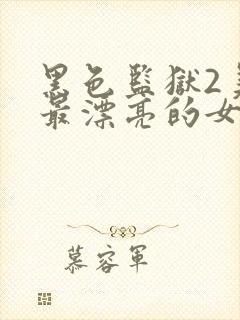 黑色監獄2
最漂亮的女
慕容軍